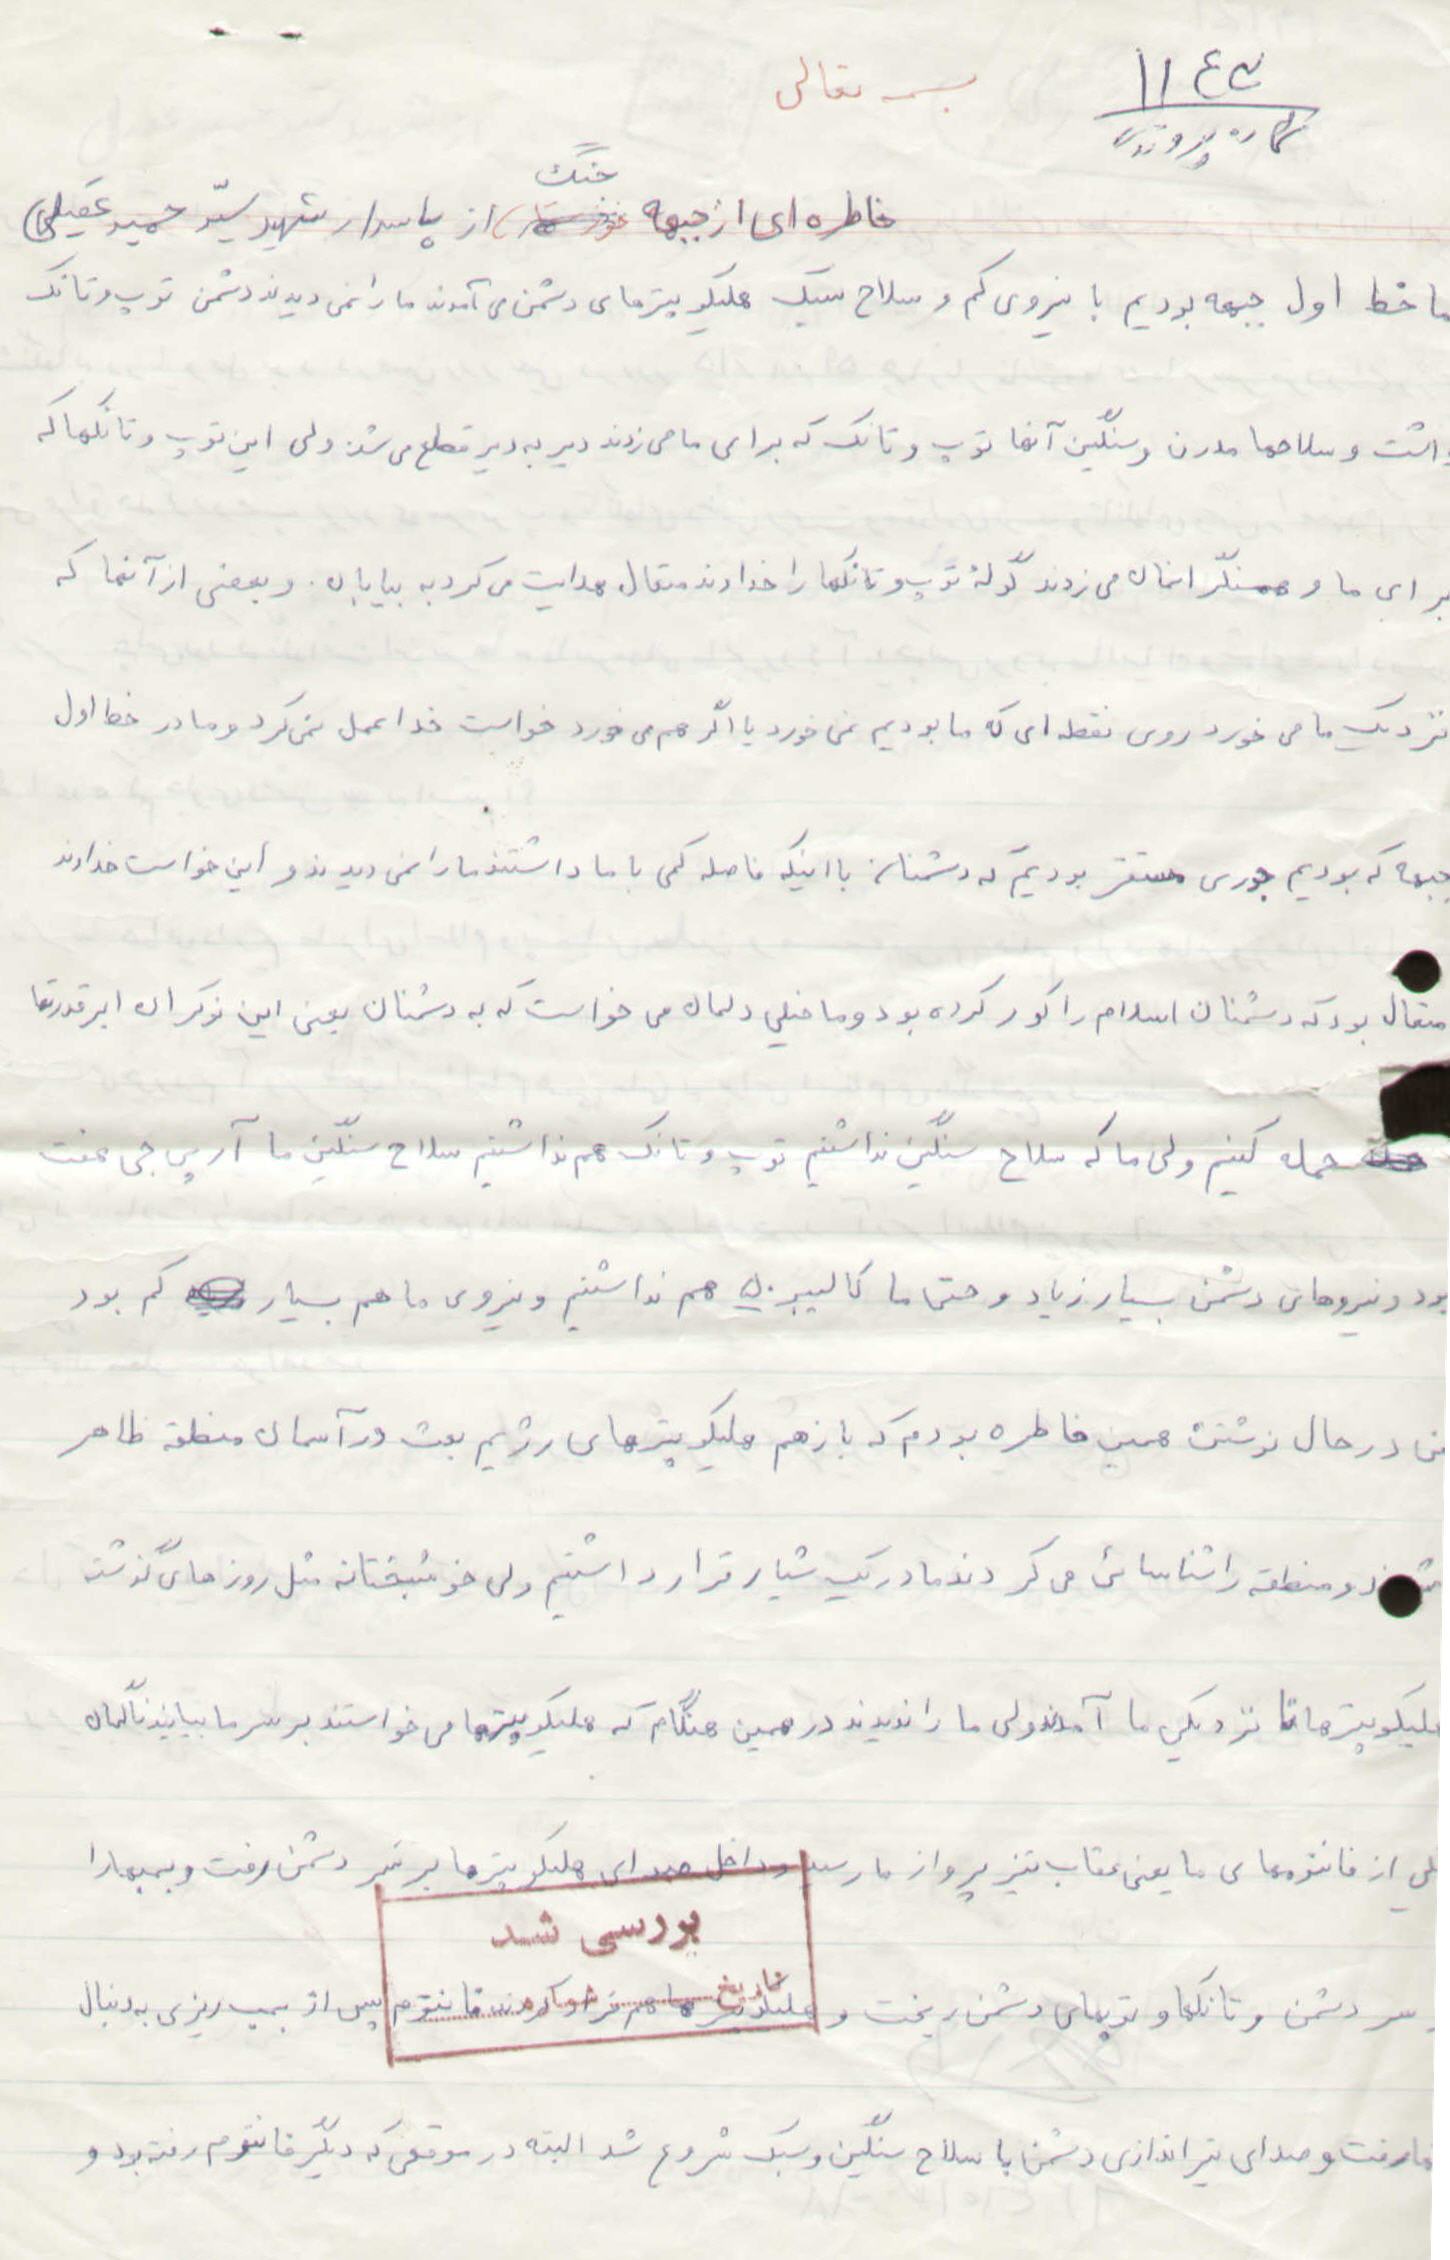 ۱۱۶۳
شماره پرونده
بسمه تعالی
جنگ
خاطره ای از جبهه (از پاسدار شهید سید حمید عقیلی)
ما خط اول جبهه بودیم با نیروی کم و سلاح سبک هلیکوپترهای دشمن می آمدند ما را نمی دیدند دشمن توپ و تانک
داشت و سلاحها مدرن و سنگین آنها توپ و تانک که برای ما می زدند دیر به دیر قطع می شد ولی این توپ و تانکها که
برای ما و همسنگرانمان می زدند گولهٔ توپ و تانکها را خداوند متعال هدایت می کرد به بیابان. و بعضی از آنها که
نزدیک ما می خورد روی نقطه ای که ما بودیم نمی خورد یا اگر هم می خورد خواست خدا عمل نمی کرد و ما در خط اول
جبهه که بودیم جوری مستقر بودیم که دشمنان با اینکه فاصله کمی با ما داشتند ما را نمی دیدند و این خواست خداوند
متعال بود که دشمنان اسلام را کور کرده بود و ما خیلی دلمان می خواست که به دشمنان یعنی این نوکران ابرقدرتها
حمله کنیم ولی ما که سلاح سنگین نداشتیم توپ و تانک هم نداشتیم سلاح سنگین ما آر پی جی هفت
بود و نیروهای دشمن بسیار زیاد و حتی ما کالیبر ۵۰ هم نداشتیم و نیروی ما هم بسیار کم بود
من در حال نوشتن همین خاطره بودم که باز هم هلیکوپترهای رژیم بعث در آسمان منطقه ظاهر
شدند و منطقه را شناسائی می کردند ما در یک شیار قرار داشتیم ولی خوشبختانه مثل روزهای گذشته
هلیکوپترها تا نزدیکی ما آمدند ولی ما را ندیدند در همین هنگام که هلیکوپترها می خواستند بر سر ما بیایند ناگهان
یکی از فانتومهای ما یعنی عقاب تیز پرواز ما رسید و داخل صدای هلیکوپترها بر سر دشمن رفت و بمبها را
بررسی شد
تاریخ
بر سر دشمن و تانکها و توپهای دشمن ریخت و هلیکوپترها هم فرار کردند فانتوم پس از بمب ریزی به دنبال
رفت و صدای تیراندازی دشمن با سلاح سنگین و سبک شروع شد البته در موقعی که دیگر فانتوم رفته بود و